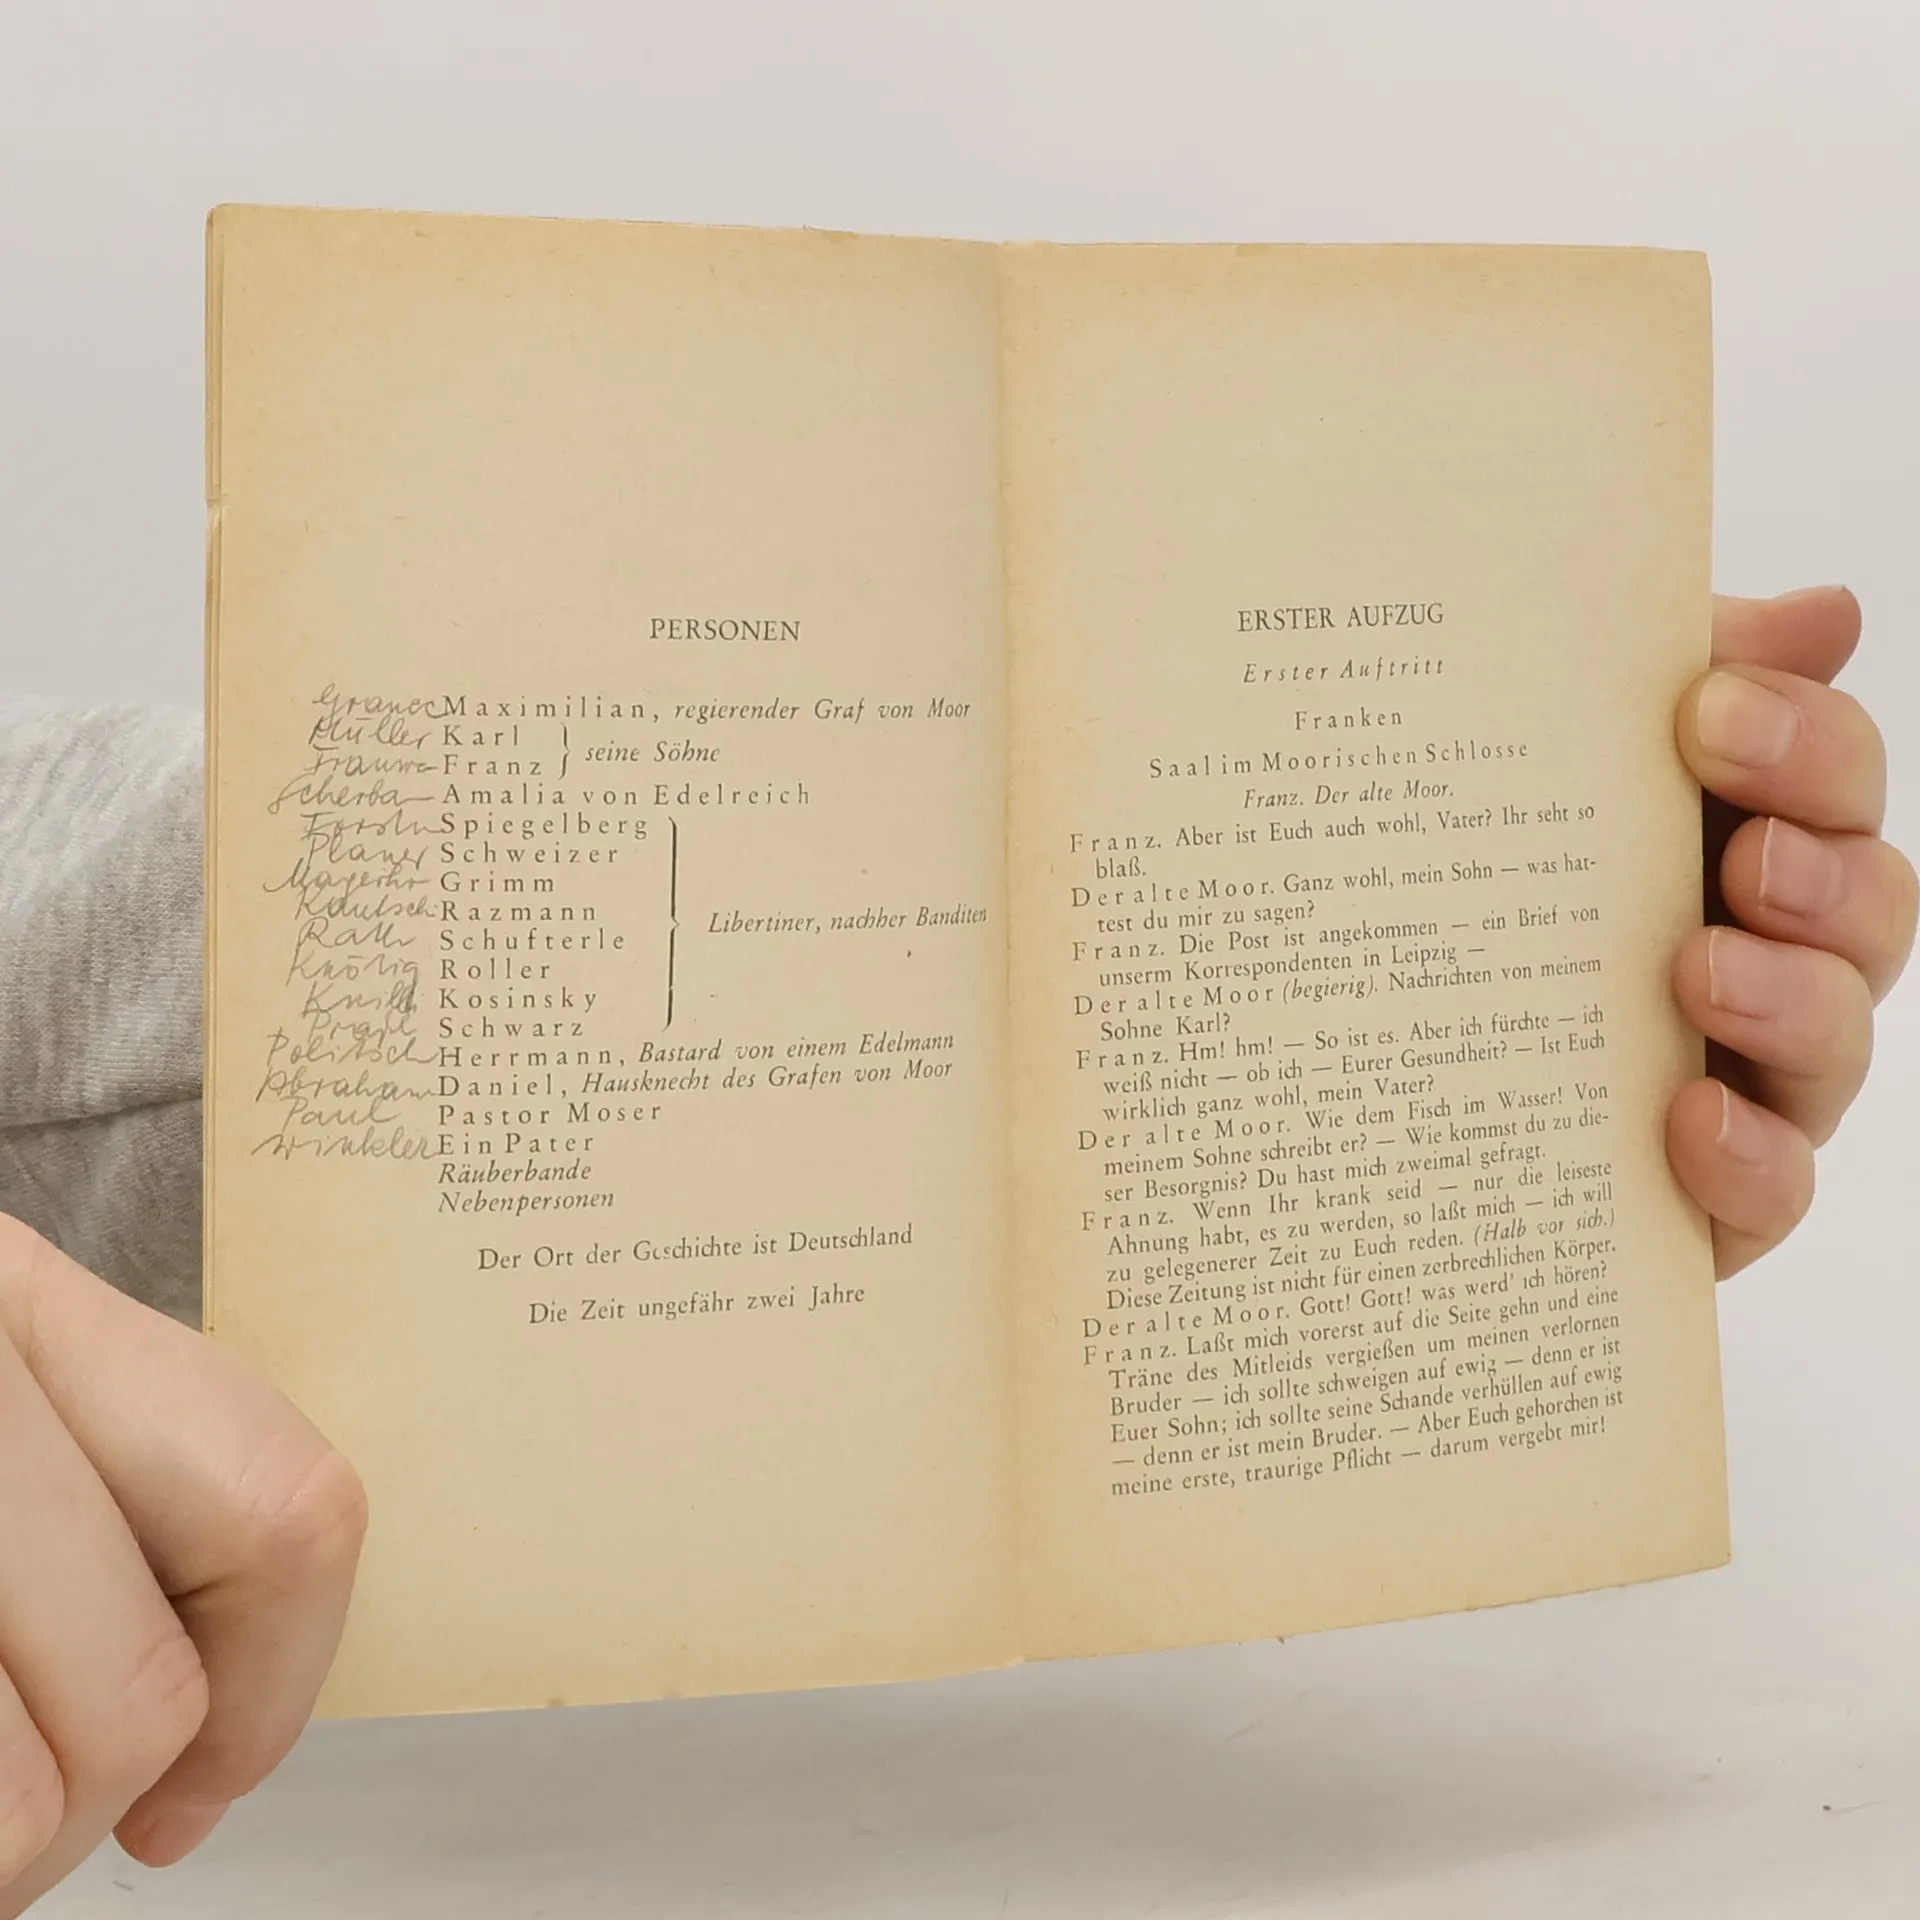 PERSONEN
Maximilian, regierender Graf von Moor
Müller Karl
seine Söhne
Franz
Scherba Amalia von Edelreich
Spiegelberg
Planer Schweizer
Grimm
Razmann
Libertiner, nachher Banditen
Schufterle
Roller
Kosinsky
Schwarz
Politsch Herrmann, Bastard von einem Edelmann
Abraham Daniel, Hausknecht des Grafen von Moor
Paul Pastor Moser
Winkler Ein Pater
Räuberbande
Nebenpersonen
Der Ort der Geschichte ist Deutschland
Die Zeit ungefähr zwei Jahre
ERSTER AUFZUG
Erster Auftritt
Franken
Saal im Moorischen Schlosse
Franz. Der alte Moor.
Franz. Aber ist Euch auch wohl, Vater? Ihr seht so
blaß.
Der alte Moor. Ganz wohl, mein Sohn — was hat-
test du mir zu sagen?
Franz. Die Post ist angekommen — ein Brief von
unserm Korrespondenten in Leipzig —
Der alte Moor (begierig). Nachrichten von meinem
Sohne Karl?
Franz. Hm! hm! — So ist es. Aber ich fürchte — ich
weiß nicht — ob ich — Eurer Gesundheit? — Ist Euch
wirklich ganz wohl, mein Vater?
Der alte Moor. Wie dem Fisch im Wasser! Von
meinem Sohne schreibt er? — Wie kommst du zu die-
ser Besorgnis? Du hast mich zweimal gefragt.
Franz. Wenn Ihr krank seid — nur die leiseste
Ahnung habt, es zu werden, so laßt mich — ich will
zu gelegenerer Zeit zu Euch reden. (Halb vor sich.)
Diese Zeitung ist nicht für einen zerbrechlichen Körper.
Der alte Moor. Gott! Gott! was werd' ich hören?
Franz. Laßt mich vorerst auf die Seite gehn und eine
Träne des Mitleids vergießen um meinen verlornen
Bruder — ich sollte schweigen auf ewig — denn er ist
Euer Sohn; ich sollte seine Schande verhüllen auf ewig
— denn er ist mein Bruder. — Aber Euch gehorchen ist
meine erste, traurige Pflicht — darum vergebt mir!